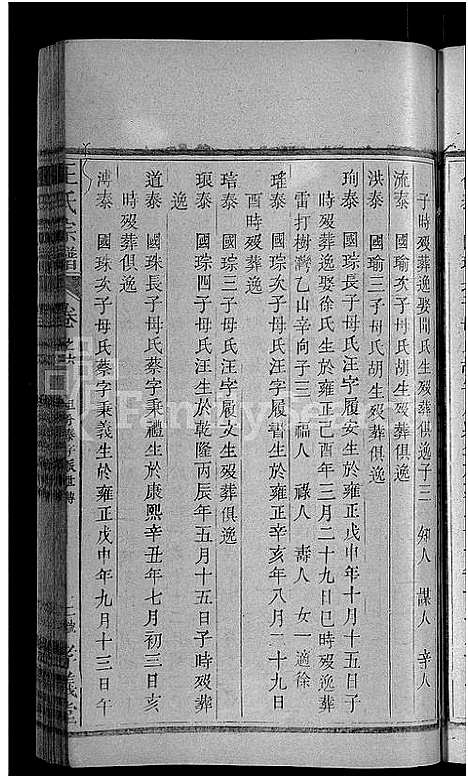 子時歿葬逸娶閆氏生歿葬俱逸子三 知人 謀人 辛人
流泰 國瑜次子母氏胡生歿葬俱逸
洪泰 國瑜三子母氏胡生歿葬俱逸
珣泰 國琮長子母氏汪字履安生於雍正戊申年十月十五日子
時歿葬逸娶徐氏生於雍正己酉年三月二十九日巳時歿逸葬
雷打樹灣乙山辛向子三 福人 祿人 壽人 女一適徐
瑤泰 國琮次子母氏汪字履智生於雍正辛亥年八月二十九日
酉時歿葬逸
琣泰 國琮三子母氏汪字履文生歿葬俱逸
琅泰 國琮四子母氏汪生於乾隆丙辰年五月十五日子時歿葬
逸
道泰 國珠長子母氏蔡字秉禮生於康熙辛丑年七月初三日亥
時歿葬俱逸
溥泰 國珠次子母氏蔡字秉義生於雍正戊申年九月十三日午
氏宗譜 卷之六